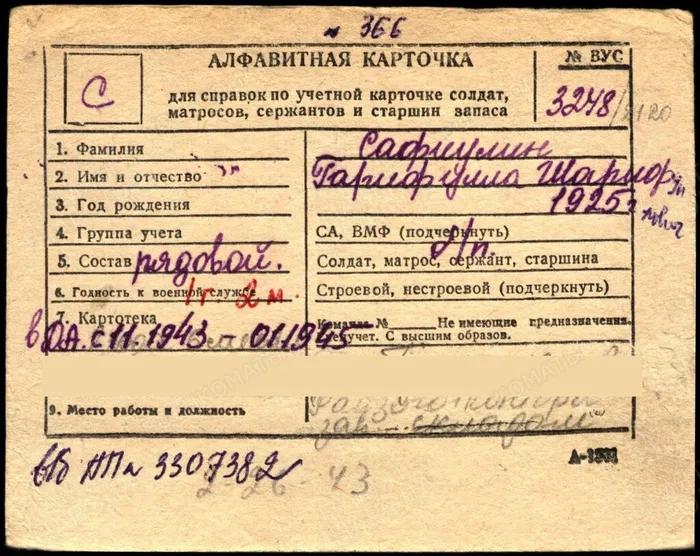 № 366
АЛФАВИТНАЯ КАРТОЧКА
№ ВУС
С
для справок по учетной карточке солдат,
матросов, сержантов и старшин запаса
3248/2120
1. Фамилия
Сафиулин
2. Имя и отчество
Гарифулла Шариф
3. Год рождения
1925 г
4. Группа учета
СА, ВМФ (подчеркнуть)
б/п.
5. Состав рядовой.
Солдат, матрос, сержант, старшина
6. Годность к военной службе
Строевой, нестроевой (подчеркнуть)
7. Картотека
Команда № Не имеющие предназначения.
в С.А. с 11.1943 - 01.1945
Спецучет. С высшим образов.
9. Место работы и должность
зав складом
в/б НП № 3307382
А-1331
2-26-43